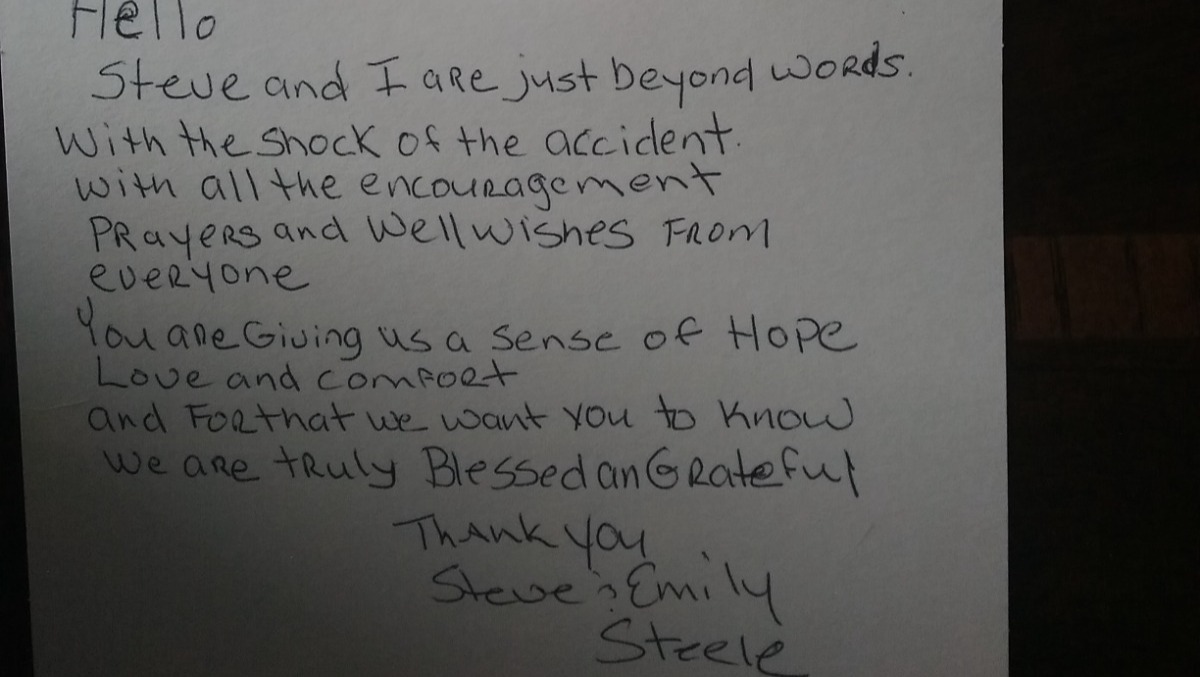 Hello
Steve and I are just beyond words.
With the shock of the accident.
with all the encouragement
Prayers and Well wishes From
everyone
You are Giving us a sense of Hope
Love and comfort
and For that we want you to know
we are truly Blessed an Grateful
Thank you
Steve & Emily
Steele